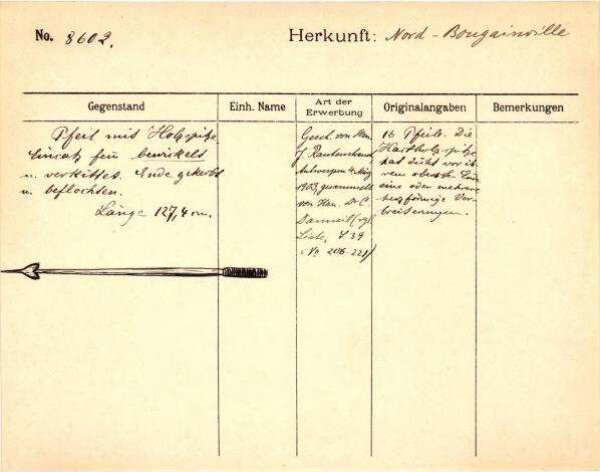 No. 8602.
Herkunft: Nord-Bougainville
Gegenstand
Einh. Name
Art der Erwerbung
Originalangaben
Bemerkungen
Pfeil mit Holzspitze
Einsatz fein bewickelt
u. verkittet. Ende gekerbt
u. beflochten.
Länge 127,4 cm.
Gesch. von Hrn.
J. Rautenstrauch
Antwerpen 4. März
1903, gesammelt
von Hrn. Dr. C.
Danneil (vgl.
Liste, S 39
No 206-221)
16 Pfeile. Die
Hartholzspitze
hat dicht vor ih-
rem obersten
eine oder mehrere
herzförmige Ver-
breiterungen.